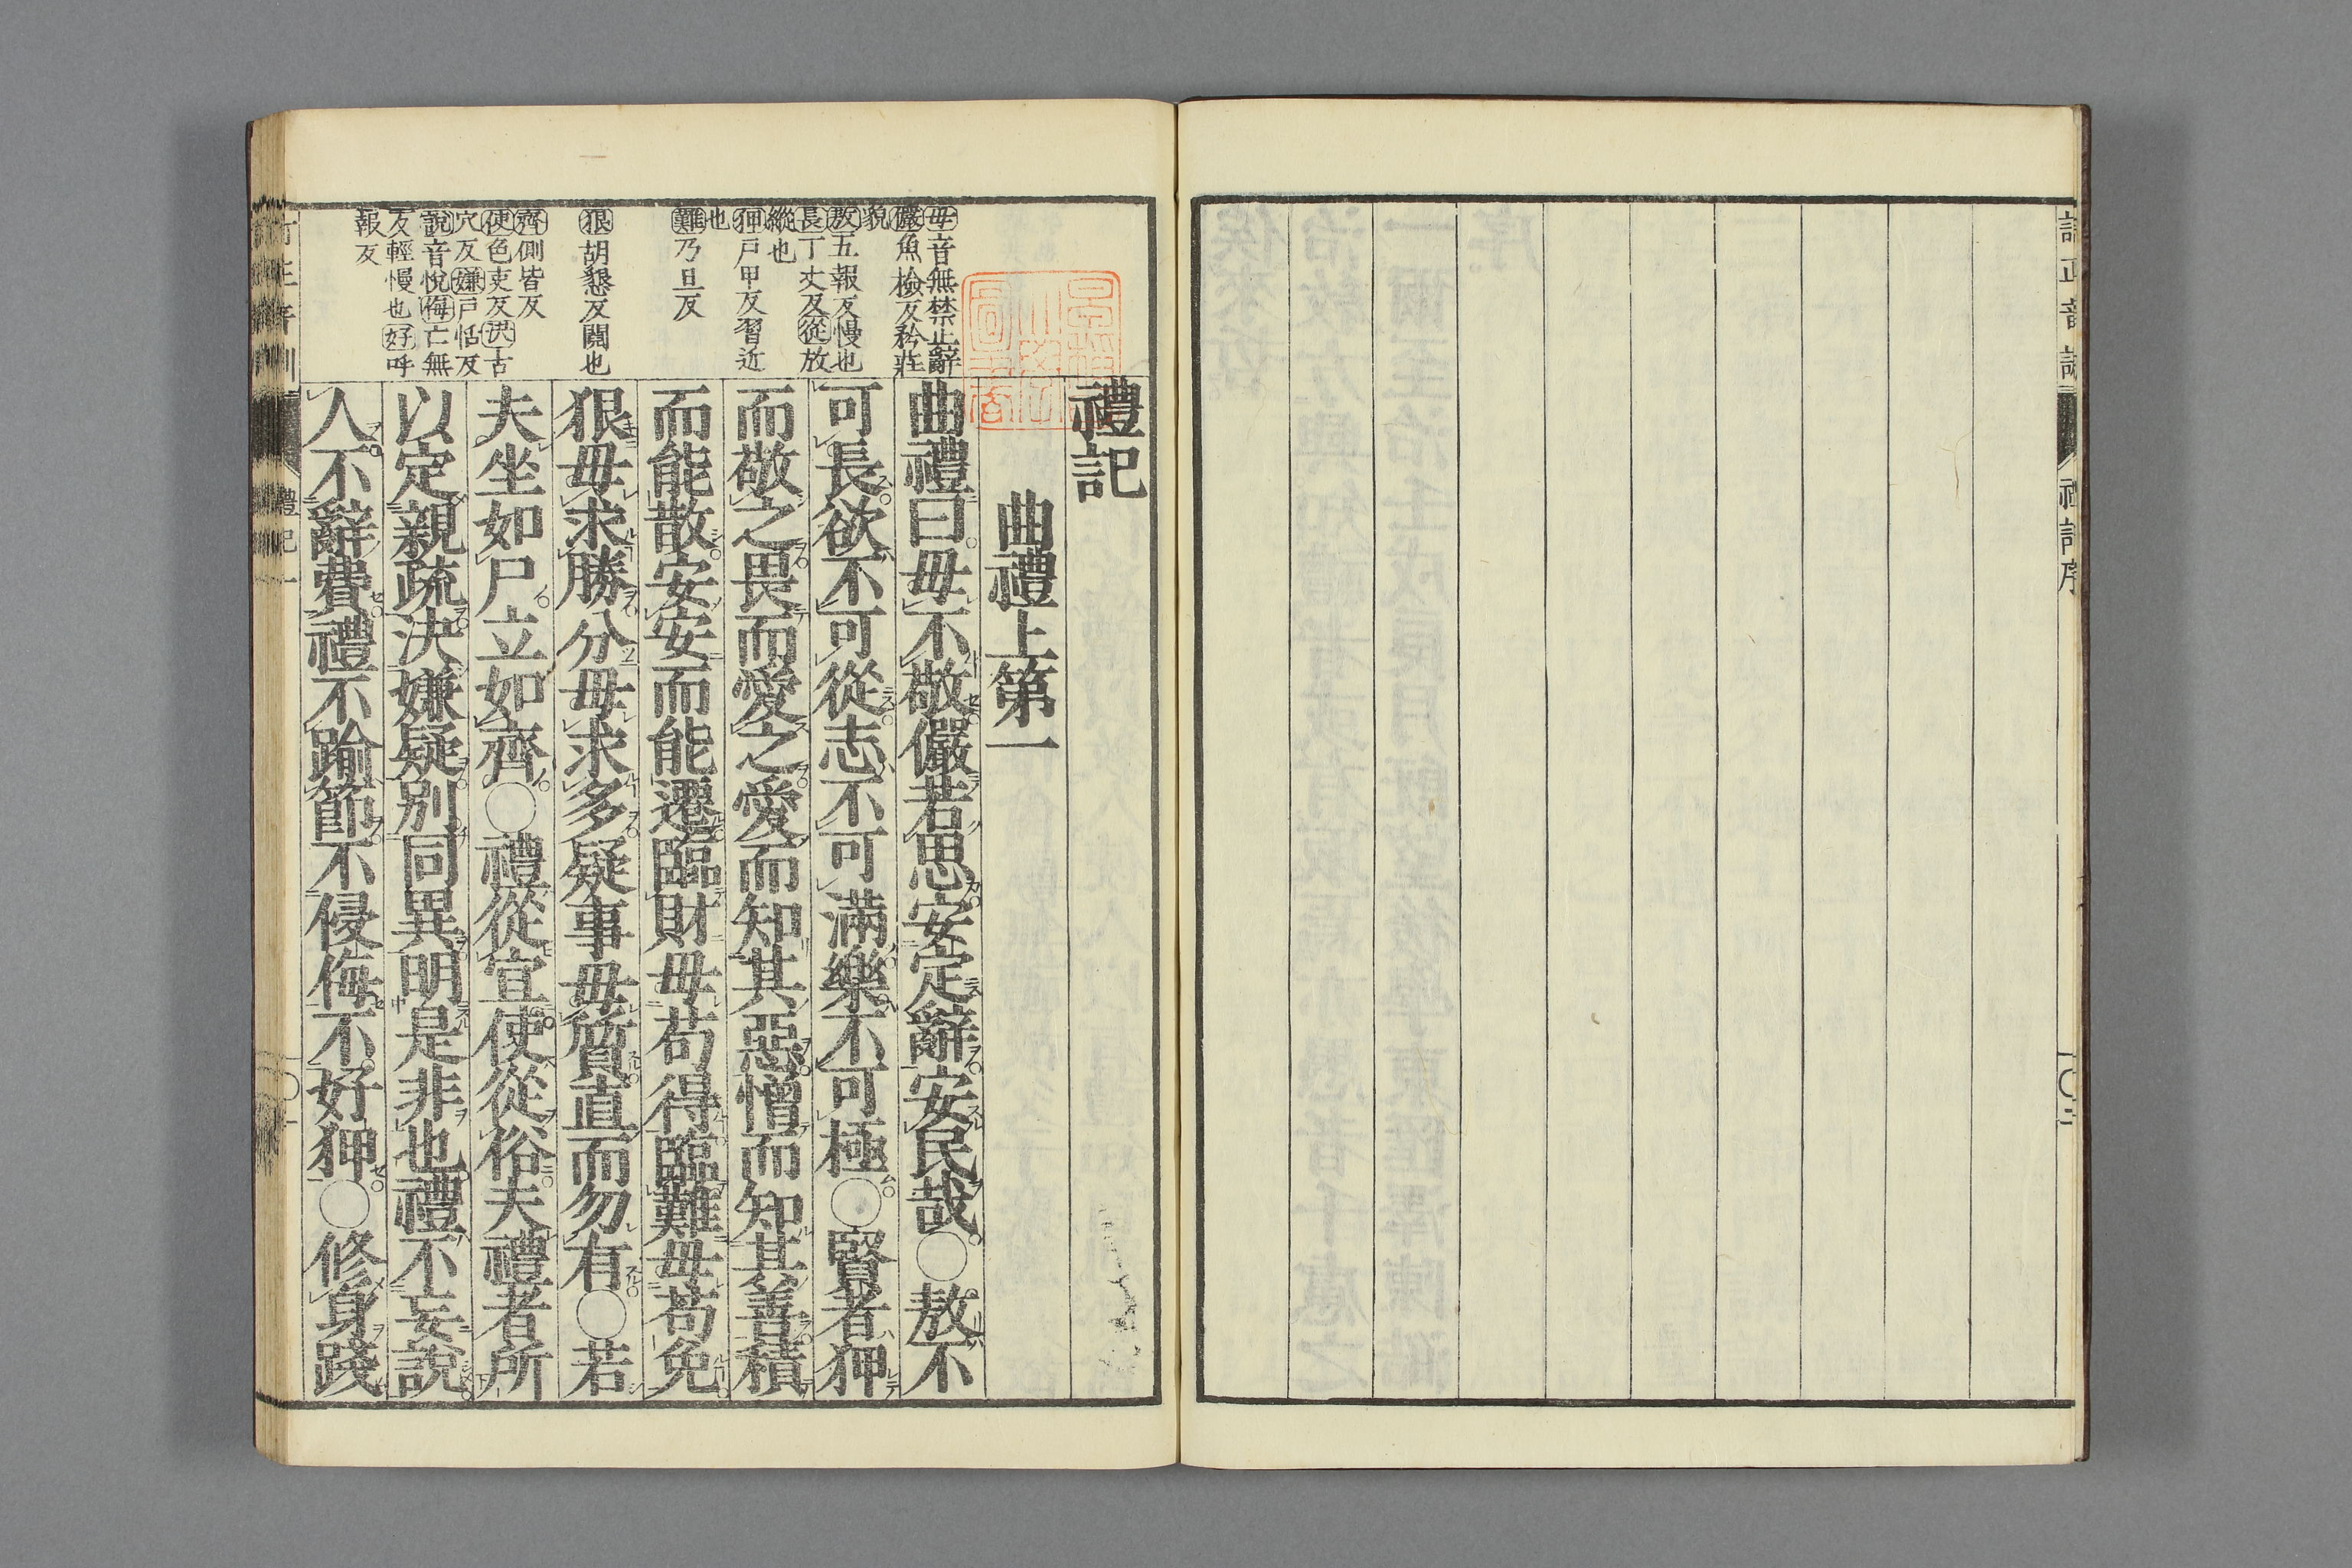 禮記序
毋音無禁止辭
儼魚檢反矜莊
貌
敖五報反慢也
長丁丈反從放
縱也
狎戶甲反習近
也
難乃旦反
狠胡懇反鬩也
齊側皆反
使色吏反決古
穴反嫌戶恬反
說音悅侮亡無
反輕慢也好呼
報反
禮記
曲禮上第一
曲禮曰毋不敬儼若思安定辭安民哉〇敖不
可長欲不可從志不可滿樂不可極〇賢者狎
而敬之畏而愛之愛而知其惡憎而知其善積
而能散安安而能遷臨財毋苟得臨難毋苟免
狠毋求勝分毋求多疑事毋質直而勿有〇若
夫坐如尸立如齊〇禮從宜使從俗夫禮者所
以定親疏決嫌疑別同異明是非也禮不妄說
人不辭費禮不踰節不侵侮不好狎〇修身踐
禮記一